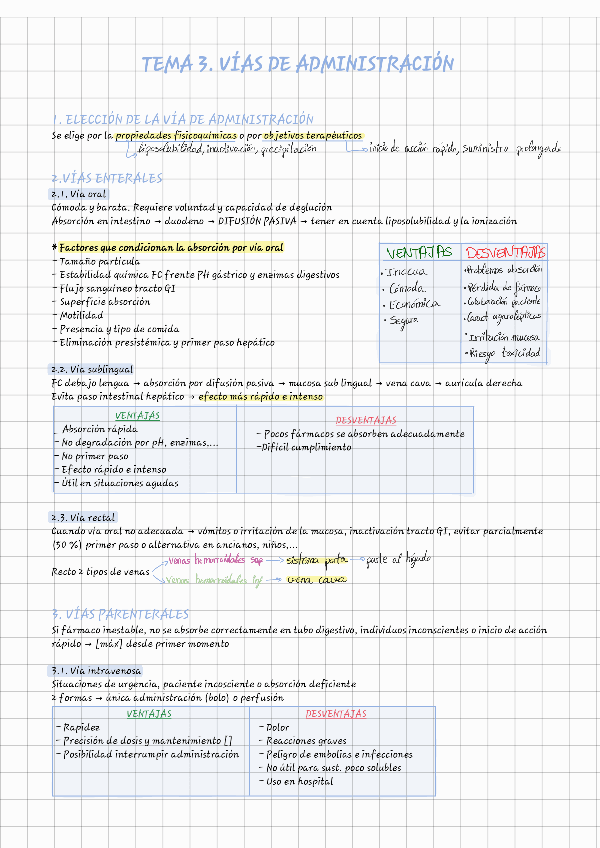 TEMA 3. VÍAS DE ADMINISTRACIÓN
1. ELECCIÓN DE LA VÍA DE ADMINISTRACIÓN
Se elige por la propiedades fisicoquímicas o por objetivos terapéuticos
liposolubilidad, inactivación, precipitación
inicio de acción rápido, suministro prolongado
2.VÍAS ENTERALES
2.1. Vía oral
Cómoda y barata. Requiere voluntad y capacidad de deglución
Absorción en intestino → duodeno → DIFUSIÓN PASIVA → tener en cuenta liposolubilidad y la ionización
* Factores que condicionan la absorción por vía oral
- Tamaño partícula
- Estabilidad química FC frente PH gástrico y enzimas digestivos
- Flujo sanguíneo tracto GI
- Superficie absorción
- Motilidad
- Presencia y tipo de comida
- Eliminación presistémica y primer paso hepático
VENTAJAS
• Inocua
• Cómoda
• Económica
• Segura
DESVENTAJAS
• Problemas absorción
• Pérdida de fármaco
• Colaboración paciente
• Caract organolépticas
• Irritación mucosa
• Riesgo toxicidad
2.2. Vía sublingual
FC debajo lengua → absorción por difusión pasiva → mucosa sub lingual → vena cava → aurícula derecha
Evita paso intestinal hepático → efecto más rápido e intenso
VENTAJAS
- Absorción rápida
- No degradación por pH, enzimas,...
- No primer paso
- Efecto rápido e intenso
- Útil en situaciones agudas
DESVENTAJAS
- Pocos fármacos se absorben adecuadamente
-Difícil cumplimiento
2.3. Vía rectal
Cuando vía oral no adecuada → vómitos o irritación de la mucosa, inactivación tracto GI, evitar parcialmente
(50 %) primer paso o alternativa en ancianos, niños,...
Recto 2 tipos de venas
venas hemorroidales sup → sistema porta → paste al hígado
Venas hemorroidales inf → vena cava
3. VÍAS PARENTERALES
Si fármaco inestable, no se absorbe correctamente en tubo digestivo, individuos inconscientes o inicio de acción
rápido → [máx] desde primer momento
3.1. Vía intravenosa
Situaciones de urgencia, paciente incosciente o absorción deficiente
2 formas → única administración (bolo) o perfusión
VENTAJAS
- Rapidez
- Precisión de dosis y mantenimiento []
- Posibilidad interrumpir administración
DESVENTAJAS
- Dolor
- Reacciones graves
- Peligro de embolias e infecciones
- No útil para sust. poco solubles
- Uso en hospital